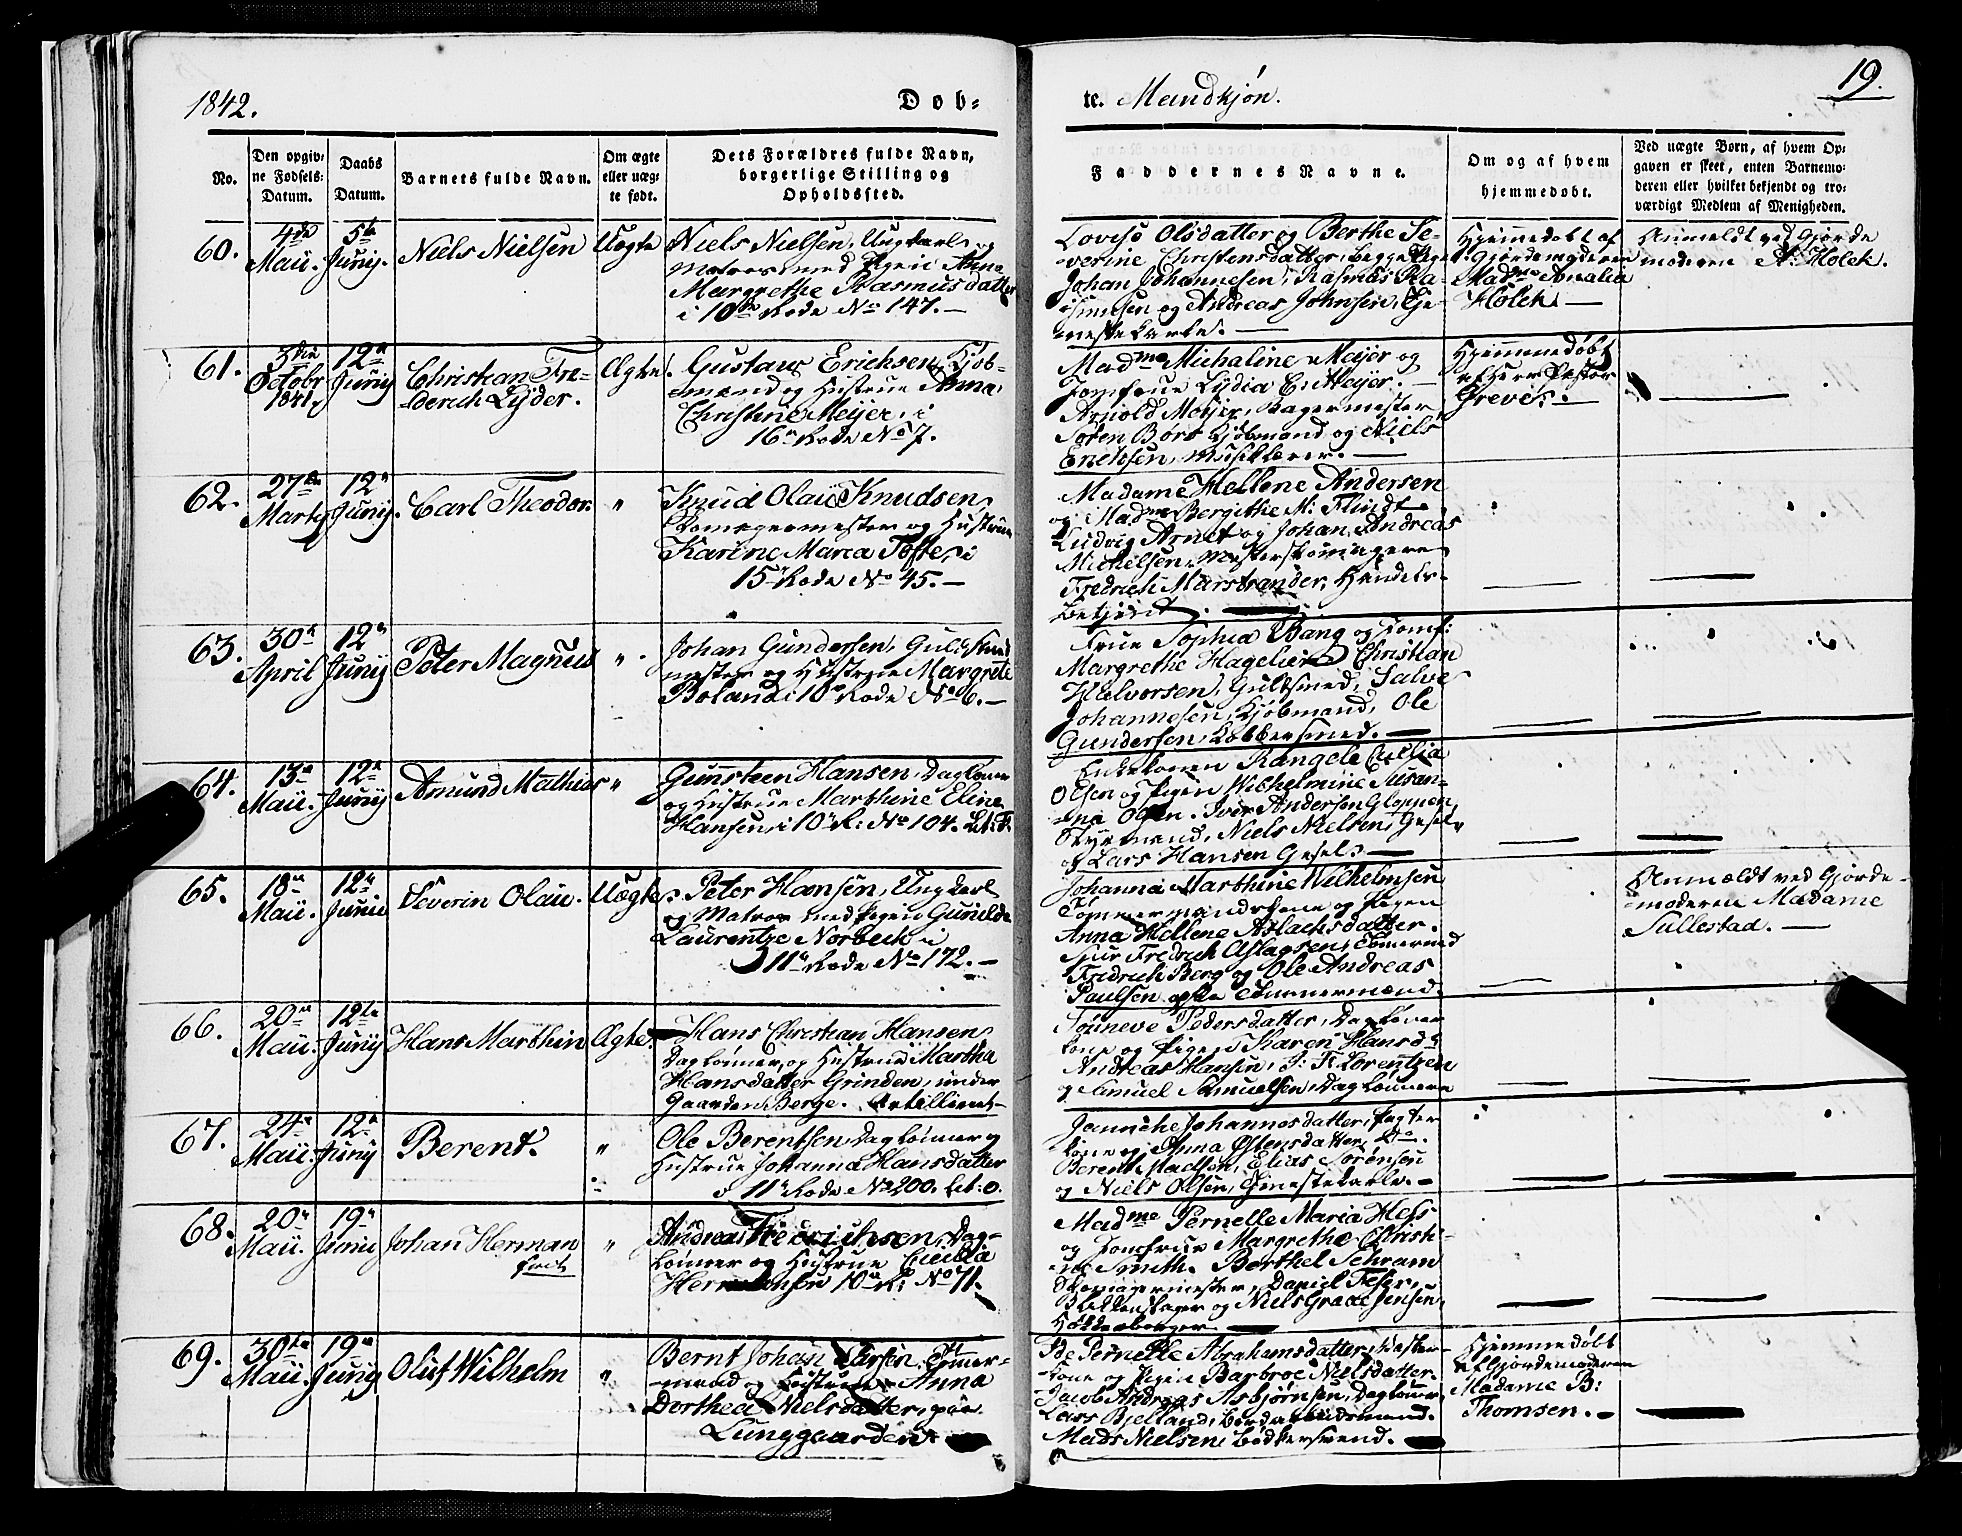 1842.
Døb-
te. Mandkjøn.
19.
No.
Den opgiv-
ne Fødsels-
Datum.
Daabs
Datum.
Barnets fulde Navn.
Om ægte
eller uæg-
te født.
Dets Forældres fulde Navn,
borgerlige Stilling og
Opholdssted.
Faddernes Navne.
Om og af hvem
hjemmedøbt.
Ved uægte Børn, af hvem Op-
gaven er skeet, enten Barnemo-
deren eller hvilket bekjendt og tro-
værdigt Medlem af Menigheden.
60.
4de
Maii.
5te
Junij.
Niels Nielsen
Uægte
Niels Nielsen, Ungkarl og
Matros med Pigen Anne
Margrethe Rasmusdatter
i 10de Rode No 147.
Lovise Olsdatter og Berthe Se-
verine Christensdatter, begge
Johan Johannesen, Rasmus Ra-
smusen og Andreas Johnsen, Tje-
nestekarle.
Hjemmedøbt af
Gjordemoderen
Madme Amalia
Holck.
Anmeldt ved Gjorde
moderen A. Holck.
61.
3die
Octobr
1841.
12te
Junij
Christian Fre-
derich Lyder.
Ægte.
Gustav Erichsen, Kjøb-
mand og Hustrue Anna
Christine Meyer, i
16de Rode No 7.
Madme Michaline Meyer og
Jomfrue Lydia E. Meyer.
Arnold Meyer, Bagermester,
Søren Børs Kjøbmand og Niels
Erichsen, Musiklærer.
Hjemmedøbt
af Herr Pastor
Greve.
62.
27de
Martij
12te
Junij.
Carl Theodor.
"
Knud Olaii Knudsen,
Skomagermester og Hustrue
Karine Maria Tofte, i
15de Rode No 45.
Madame Hellene Andersen
og Madme Bergithe M. Flindt
Ludvig Arnet og Johan Andreas
Michelsen,
Fredrich Marstrander, Handels-
betjent.
63.
30te
April
12te
Junij
Peter Magnus
"
Johan Gundersen, Guldsmed
mester og Hustrue Margrete
Boland i 10de Rode No 6.
Frue Sophia Bang og Jomf:
Margrethe Hagelien, Christian
Halvorsen, Guldsmed, Salve
Johannesen, Kjøbmand, Ole
Gundersen, Kobbersmed.
64.
13de
Maii.
12te
Junij
Amund Mathias
"
Gunnsteen Hansen, Dagløner
og Hustrue Marthine Eline
Hansen, i 10de R. No 104. Lit: F.
Enkekonen Rangele Cicilia
Olsen og Pigen Wilhelmine Susan-
na Olsen. Iver Andersen Gloppen,
Styrmand, Niels Nielsen, Gesel,
og Lars Hansen Gesel.
65.
18de
Maii.
12te
Junii
Severin Olaii.
Uægte
Peter Hansen, Ungkarl
og Matros med Pigen Gunilde
Laurentze Norbeck i
11te Rode No 172.
Johanna Marthine Wilhelmsen
Tømmermandskone og Pigen
Anna Hellene Aslachsdatter.
Sjur Fredrich Aslagsen, Tømmermd
Fredrich Berg og Ole Andreas
Paulsen Tømmermænd.
Anmeldt ved Gjorde-
moderen Madame
Sullestad.
66.
20de
Maii.
12te
Junij
Hans Marthin
Ægte.
Hans Christian Hansen,
Dagløner, og Hustrue Martha
Hansdatter Grinden, under
Gaarden Berge.
Sønneve Pedersdatter, Dagløner
kone og Pigen Karen Hansd:
Andreas Hansen, J: F. Lorentzen
og Samuel Samuelsen, Daglønere
67.
24de
Maii.
12te
Junij
Berent.
"
Ole Berentsen Dagløner og
Hustrue Johanna Hansdatter
i 11te Rode No 200. Lit: o.
Jannche Johannesdatter,
kone og Anna Østensdatter, do.
Berent Madsen, Elias Sørensen
og Niels Olsen, Tjenestekarle.
68.
20de
Maii.
19de
Junii
Johan Herman
"
Andreas Friedrichsen, Dag-
løner og Hustrue Cicilia
Hermansen 10de R. No 71.
Madme Pernelle Maria Hess
og Jomfrue Margrethe Christi-
ne Smith. Berthel Schram
Skomagermester, Daniel
Blikkenslager og Niels Graae Jensen,
69.
30te
Maii.
19de
Junij
Oluf Wilhelm
"
Bernt Johan Larsen, Tømmer-
mand og Hustrue Anna
Dorthea Nielsdatter, paa
Lunggaarden.
Pernelle Abrahamsdatter,
kone og Pigen Barbroe Nielsdatter.
Jacob Andreas Asbjørnsen, Dagløner,
Lars Bjelland,
Mads Nielsen, Bødkersvend.
Hjemmedøbt
af Gjordemoderen
Madame B:
Thomsen.